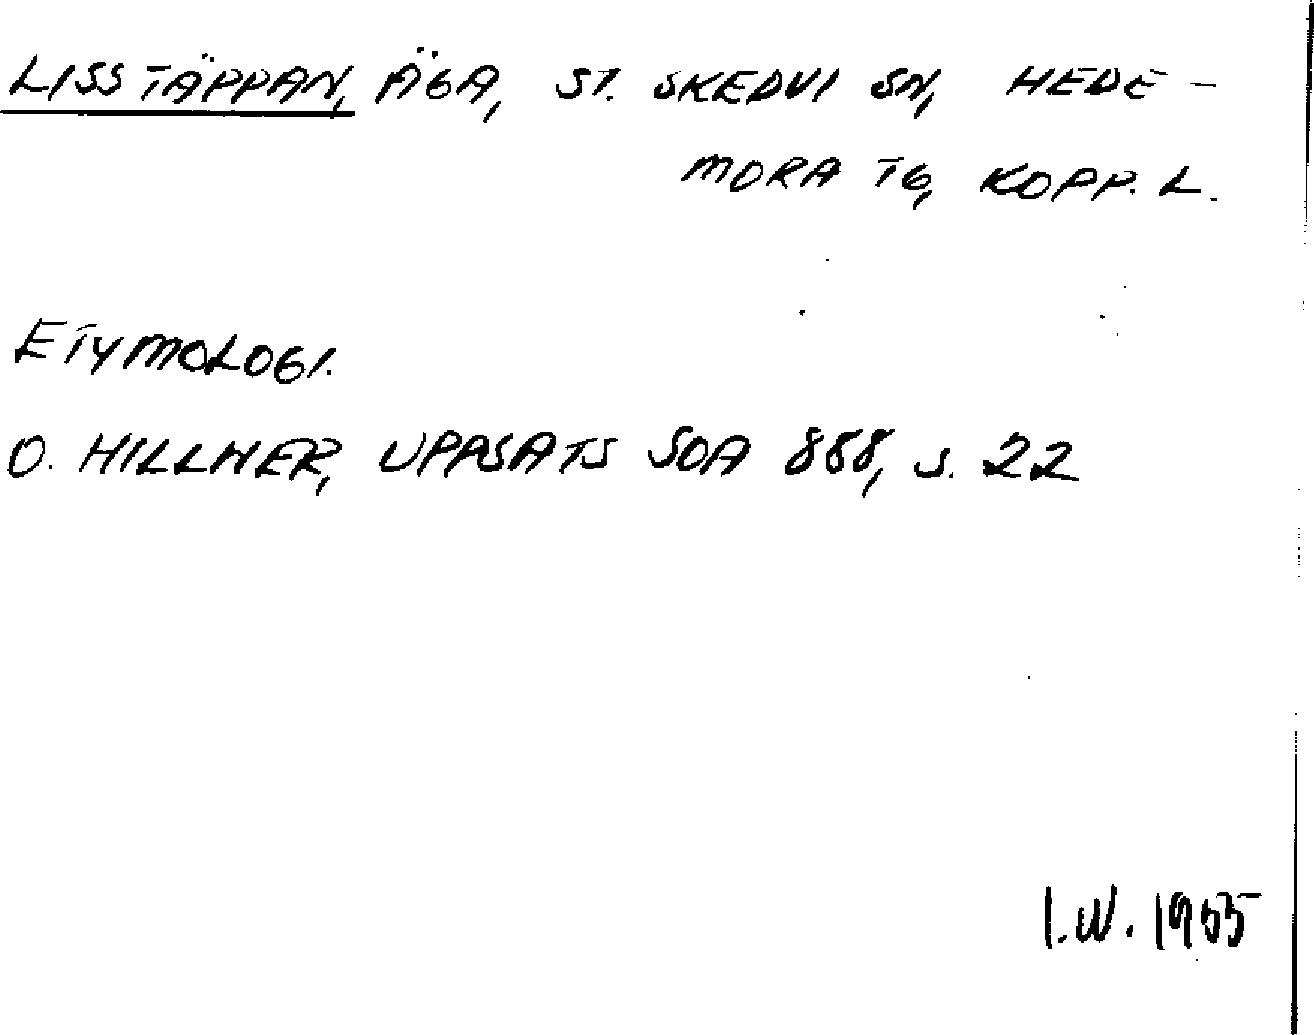 LISSTÄPPAN, ÄGA, ST. SKEDVI SN, HEDE-
MORA TG, KOPP. L.
ETYMOLOGI.
O. HILLNER, UPPSATS SOA 888, S. 22
I.W. 1955